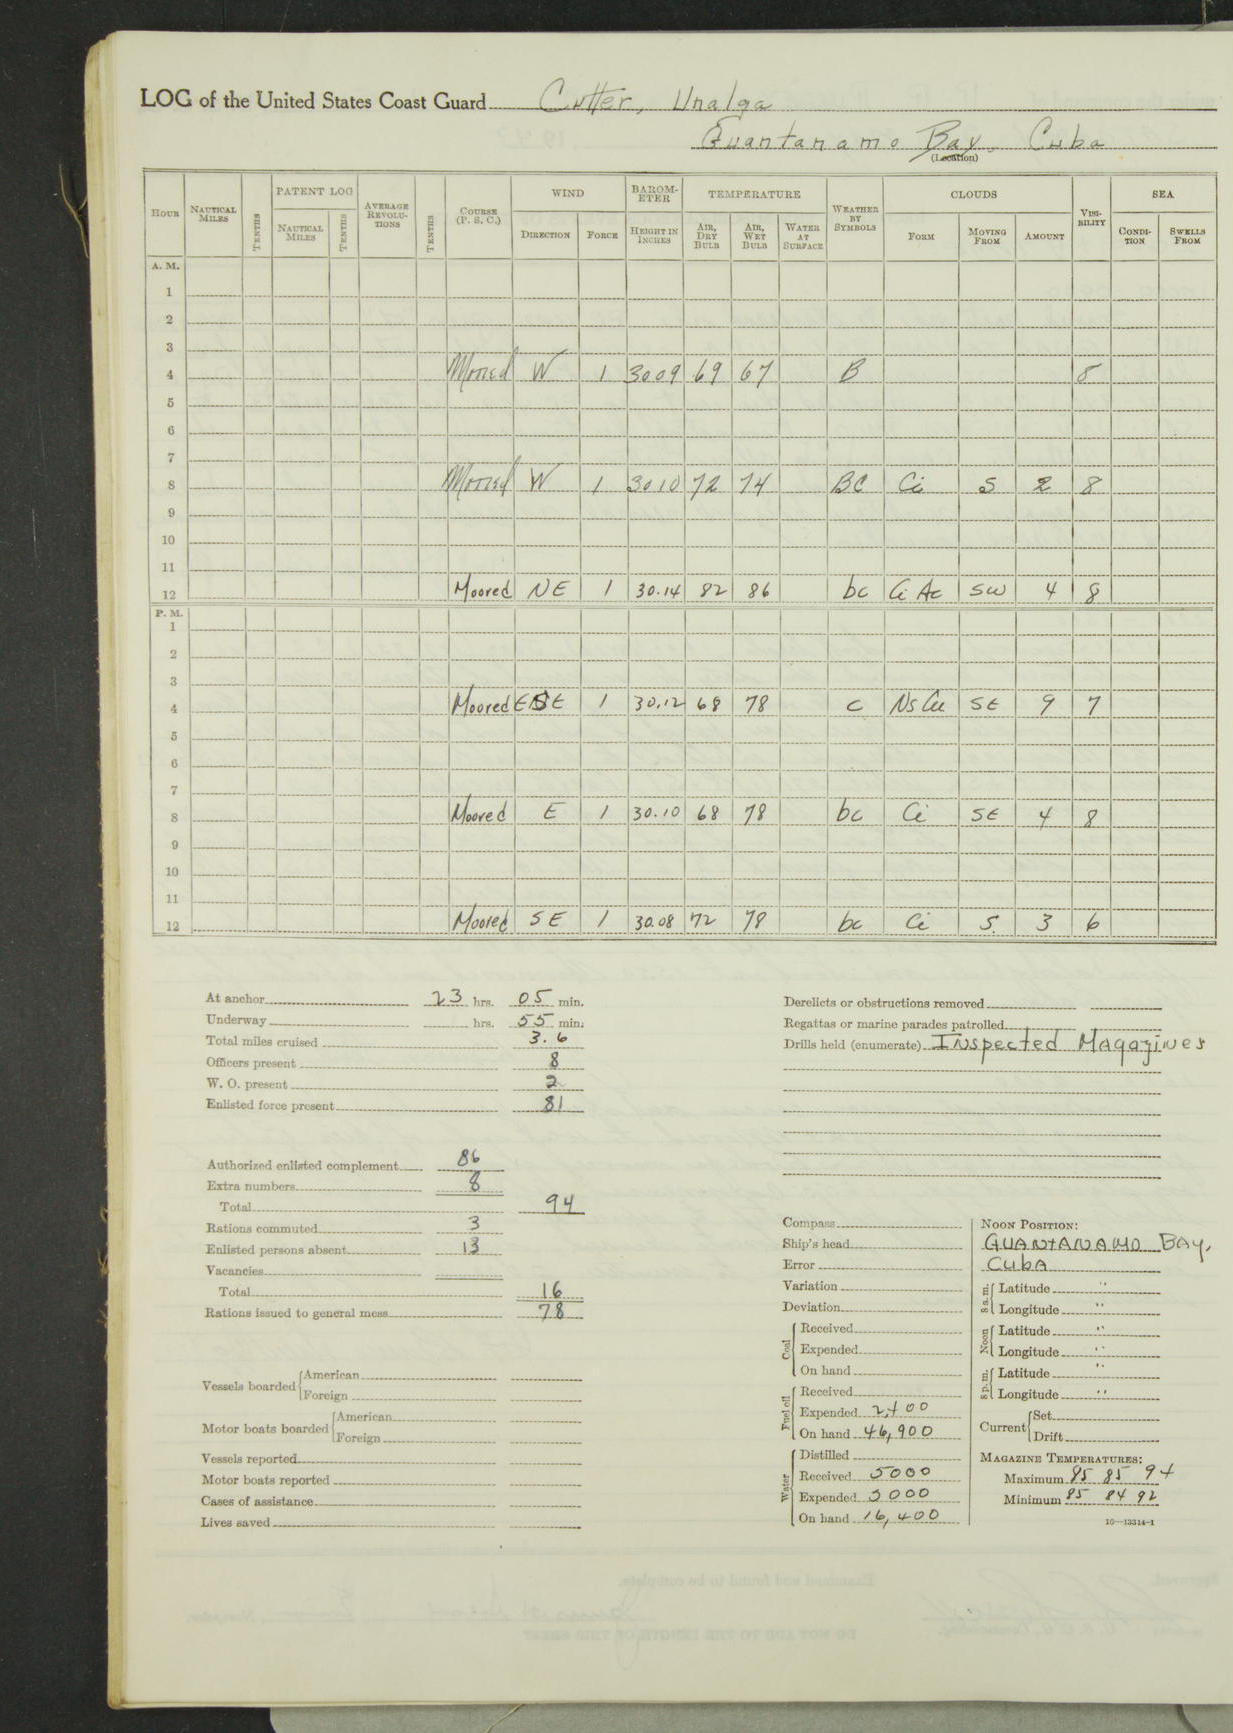 LOG of the United States Coast Guard Cutter, Unalga
Guantanamo Bay, Cuba
(Location)
HOUR NAUTICAL MILES TENTHS PATENT LOG NAUTICAL MILES TENTHS AVERAGE REVOLUTIONS TENTHS COURSE (P. S. C.) WIND DIRECTION FORCE BAROMETER HEIGHT IN INCHES TEMPERATURE AIR, DRY BULB AIR, WET BULB WATER AT SURFACE WEATHER BY SYMBOLS CLOUDS FORM MOVING FROM AMOUNT VISIBILITY SEA CONDITION SWELLS FROM
A. M.
1
2
3
4 Moored W 1 3009 69 67 B 8
5
6
7
8 Moored W 1 3010 72 74 BC Ci S 2 8
9
10
11
12 Moored NE 1 30.14 82 86 bc Ci Ac SW 4 8
P. M.
1
2
3
4 Moored ESE 1 30.12 68 78 c Ns Cu SE 9 7
5
6
7
8 Moored E 1 30.10 68 78 bc Ci SE 4 8
9
10
11
12 Moored SE 1 30.08 72 78 bc Ci S. 3 6
At anchor 23 hrs. 05 min.
Underway hrs. 55 min.
Total miles cruised 3.6
Officers present 8
W. O. present 2
Enlisted force present 81
Authorized enlisted complement 86
Extra numbers 8
Total 94
Rations commuted 3
Enlisted persons absent 13
Vacancies
Total 16
Rations issued to general mess 78
Vessels boarded American
Foreign
Motor boats boarded American
Foreign
Vessels reported
Motor boats reported
Cases of assistance
Lives saved
Derelicts or obstructions removed
Regattas or marine parades patrolled
Drills held (enumerate) Inspected Magazines
Compass
Ship's head
Error
Variation
Deviation
Coal Received
Expended
On hand
Fuel oil Received
Expended 2,400
On hand 46,900
Water Distilled
Received 5000
Expended 3000
On hand 16,400
NOON POSITION:
GUANTANAMO BAY,
CUBA
8 a.m. Latitude "
Longitude "
Noon Latitude "
Longitude "
8 p.m. Latitude "
Longitude "
Current Set
Drift
MAGAZINE TEMPERATURES:
Maximum 85 85 94
Minimum 85 84 92
16—13314-1